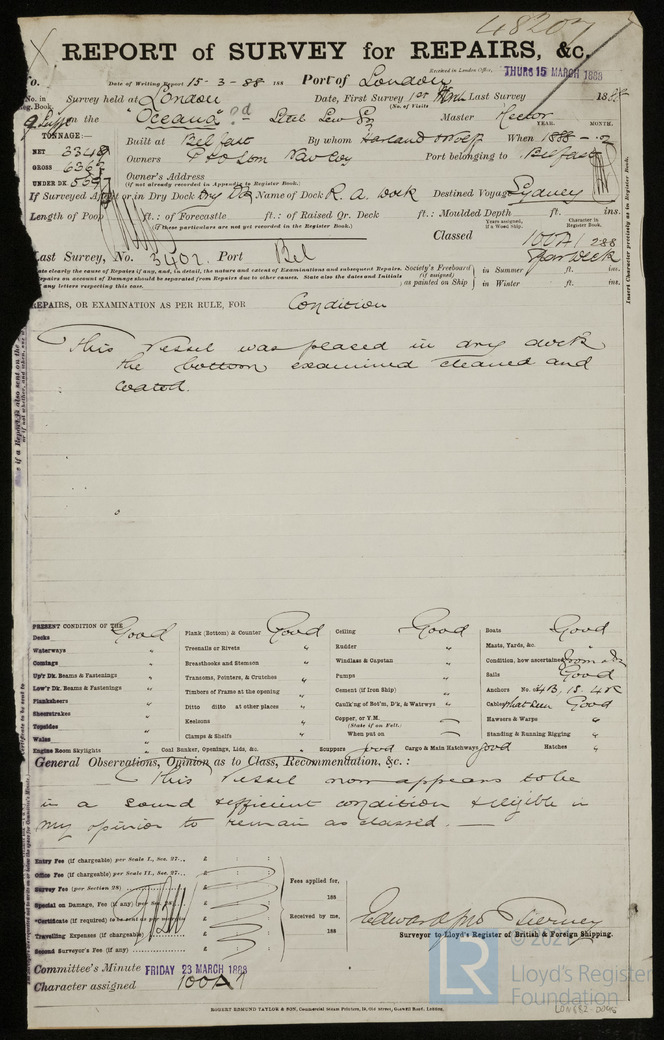 48207
REPORT of SURVEY for REPAIRS, &c.
Received in London Office, THURS 15 MARCH 1888
Date of Writing Report 15-3-88 188 Port of London
No. in Survey held at London Date, First Survey 1st Last Survey 188
Reg. Book. (No. of Visits
on the "Oceana" Master Hector
TONNAGE:— Built at Belfast By whom Harland & Wolff When 1888 YEAR. MONTH.
NET 3348
GROSS Owners P & O Stm Nav Coy Port belonging to Belfast
UNDER DK Owner's Address
(if not already recorded in Appendix to Register Book.)
If Surveyed Afloat or in Dry Dock Dry Dk Name of Dock R. A. Dock Destined Voyage Sydney
Length of Poop ft.: of Forecastle ft.: of Raised Qr. Deck ft.: Moulded Depth ft. ins.
(If these particulars are not yet recorded in the Register Book.)
Years assigned, if a Wood Ship.
Character in Register Book.
Classed 100A1 2.88
Spar Deck
Last Survey, No. 3402. Port Bel
Society's Freeboard (if assigned) as painted on Ship
in Summer ft. ins.
in Winter ft. ins.
Insert Character precisely as in Register Book.
REPAIRS, OR EXAMINATION AS PER RULE, FOR Condition
This Vessel was placed in dry dock
the bottom examined cleaned and
coated.
PRESENT CONDITION OF THE
Decks Good Plank (Bottom) & Counter Good Ceiling Good Boats Good
Waterways " Treenails or Rivets " Rudder " Masts, Yards, &c. "
Comings " Breasthooks and Stemson " Windlass & Capstan " Condition, how ascertained
Up'r Dk. Beams & Fastenings " Transoms, Pointers, & Crutches " Pumps " Sails Good
Low'r Dk. Beams & Fastenings " Timbers of Frame at the opening Cement (if Iron Ship) " Anchors No.
Planksheers " Ditto ditto at other places Caulk'ng of Bot'm, D'k, & Watrwys " Cables what seen Good
Sheerstrakes " Keelsons " Copper, or Y.M. (State if on Felt.) Hawsers & Warps "
Topsides " Clamps & Shelfs " When put on Standing & Running Rigging "
Wales "
Engine Room Skylights " Coal Bunker, Openings, Lids, &c. " Scuppers good Cargo & Main Hatchways good Hatches "
General Observations, Opinion as to Class, Recommendation, &c.:
This Vessel now appears to be
in a sound & efficient condition & eligible in
my opinion to remain as classed.
Entry Fee (if chargeable) per Scale I., Sec. 27... £ : :
Office Fee (if chargeable) per Scale II., Sec. 27... £ : :
Survey Fee (per Section 28) £ : :
Special on Damage, Fee (if any) £ : :
Certificate (if required) £ : :
Travelling Expenses (if chargeable) £ : :
Second Surveyor's Fee (if any) £ : :
Fees applied for,
188
Received by me,
188
Edward Jno Tierney
Surveyor to Lloyd's Register of British & Foreign Shipping.
Committee's Minute FRIDAY 23 MARCH 1888
Character assigned 100A1
ROBERT EDMUND TAYLOR & SON, Commercial Steam Printers, 19, Old street, Goswell Road, London.
© 2021
LR Lloyd's Register
Foundation